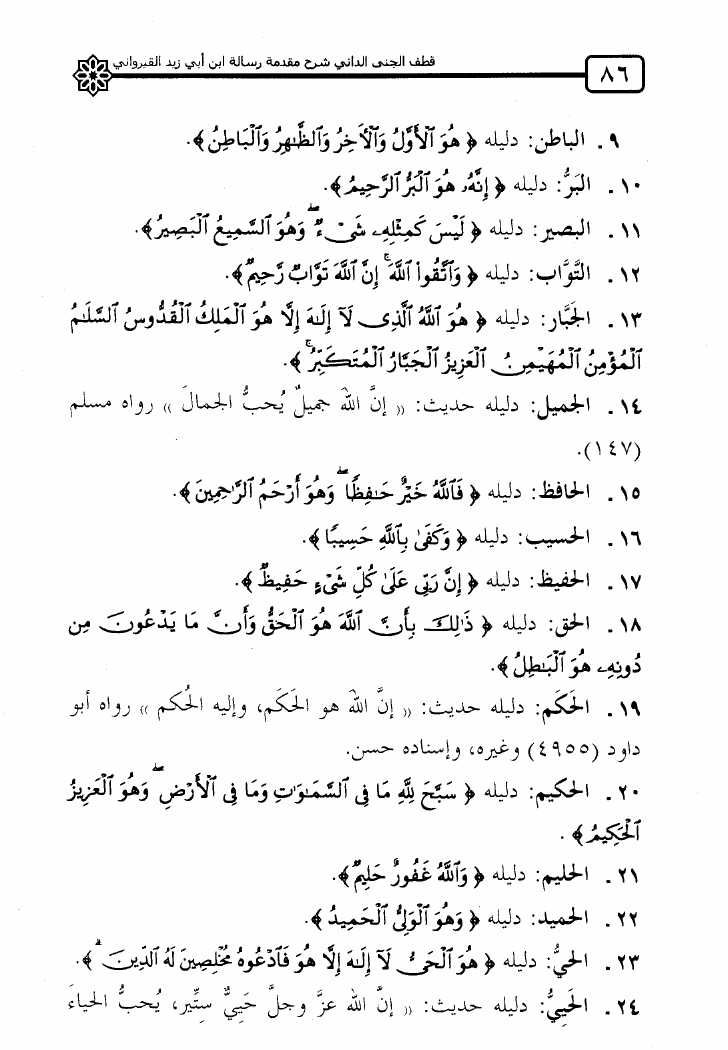 قطف الجنى الداني شرح مقدمة رسالة ابن أبي زيد القيرواني
٨٦
٩. الباطن: دليله ﴿ هُوَ ٱلْأَوَّلُ وَٱلْأَخِرُ وَٱلظَّٰهِرُ وَٱلْبَاطِنُ ﴾.
١٠. البَرُّ: دليله ﴿ إِنَّهُۥ هُوَ ٱلْبَرُّ ٱلرَّحِيمُ ﴾.
١١. البصير: دليله ﴿ لَيْسَ كَمِثْلِهِۦ شَىْءٌ ۖ وَهُوَ ٱلسَّمِيعُ ٱلْبَصِيرُ ﴾.
١٢. التَّوَّاب: دليله ﴿ وَٱتَّقُوا۟ ٱللَّهَ ۚ إِنَّ ٱللَّهَ تَوَّابٌ رَّحِيمٌ ﴾.
١٣. الجَبَّار: دليله ﴿ هُوَ ٱللَّهُ ٱلَّذِى لَآ إِلَٰهَ إِلَّا هُوَ ٱلْمَلِكُ ٱلْقُدُّوسُ ٱلسَّلَٰمُ
ٱلْمُؤْمِنُ ٱلْمُهَيْمِنُ ٱلْعَزِيزُ ٱلْجَبَّارُ ٱلْمُتَكَبِّرُ ۚ ﴾.
١٤. الجميل: دليله حديث: « إنَّ اللهَ جميلٌ يُحبُّ الجمالَ » رواه مسلم
(١٤٧).
١٥. الحافظ: دليله ﴿ فَٱللَّهُ خَيْرٌ حَٰفِظًا ۖ وَهُوَ أَرْحَمُ ٱلرَّٰحِمِينَ ﴾.
١٦. الحسيب: دليله ﴿ وَكَفَىٰ بِٱللَّهِ حَسِيبًا ﴾.
١٧. الحفيظ: دليله ﴿ إِنَّ رَبِّى عَلَىٰ كُلِّ شَىْءٍ حَفِيظٌ ﴾.
١٨. الحق: دليله ﴿ ذَٰلِكَ بِأَنَّ ٱللَّهَ هُوَ ٱلْحَقُّ وَأَنَّ مَا يَدْعُونَ مِن
دُونِهِۦ هُوَ ٱلْبَٰطِلُ ﴾.
١٩. الحَكَم: دليله حديث: « إنَّ اللهَ هو الحَكَم، وإليه الحُكم » رواه أبو
داود (٤٩٥٥) وغيره، وإسناده حسن.
٢٠. الحكيم: دليله ﴿ سَبَّحَ لِلَّهِ مَا فِى ٱلسَّمَٰوَٰتِ وَمَا فِى ٱلْأَرْضِ ۖ وَهُوَ ٱلْعَزِيزُ
ٱلْحَكِيمُ ﴾.
٢١. الحليم: دليله ﴿ وَٱللَّهُ غَفُورٌ حَلِيمٌ ﴾.
٢٢. الحميد: دليله ﴿ وَهُوَ ٱلْوَلِىُّ ٱلْحَمِيدُ ﴾.
٢٣. الحيُّ: دليله ﴿ هُوَ ٱلْحَىُّ لَآ إِلَٰهَ إِلَّا هُوَ فَٱدْعُوهُ مُخْلِصِينَ لَهُ ٱلدِّينَ ۗ ﴾.
٢٤. الحَييُّ: دليله حديث: « إنَّ الله عزَّ وجلَّ حَييٌّ ستِّير، يُحبُّ الحياءَ